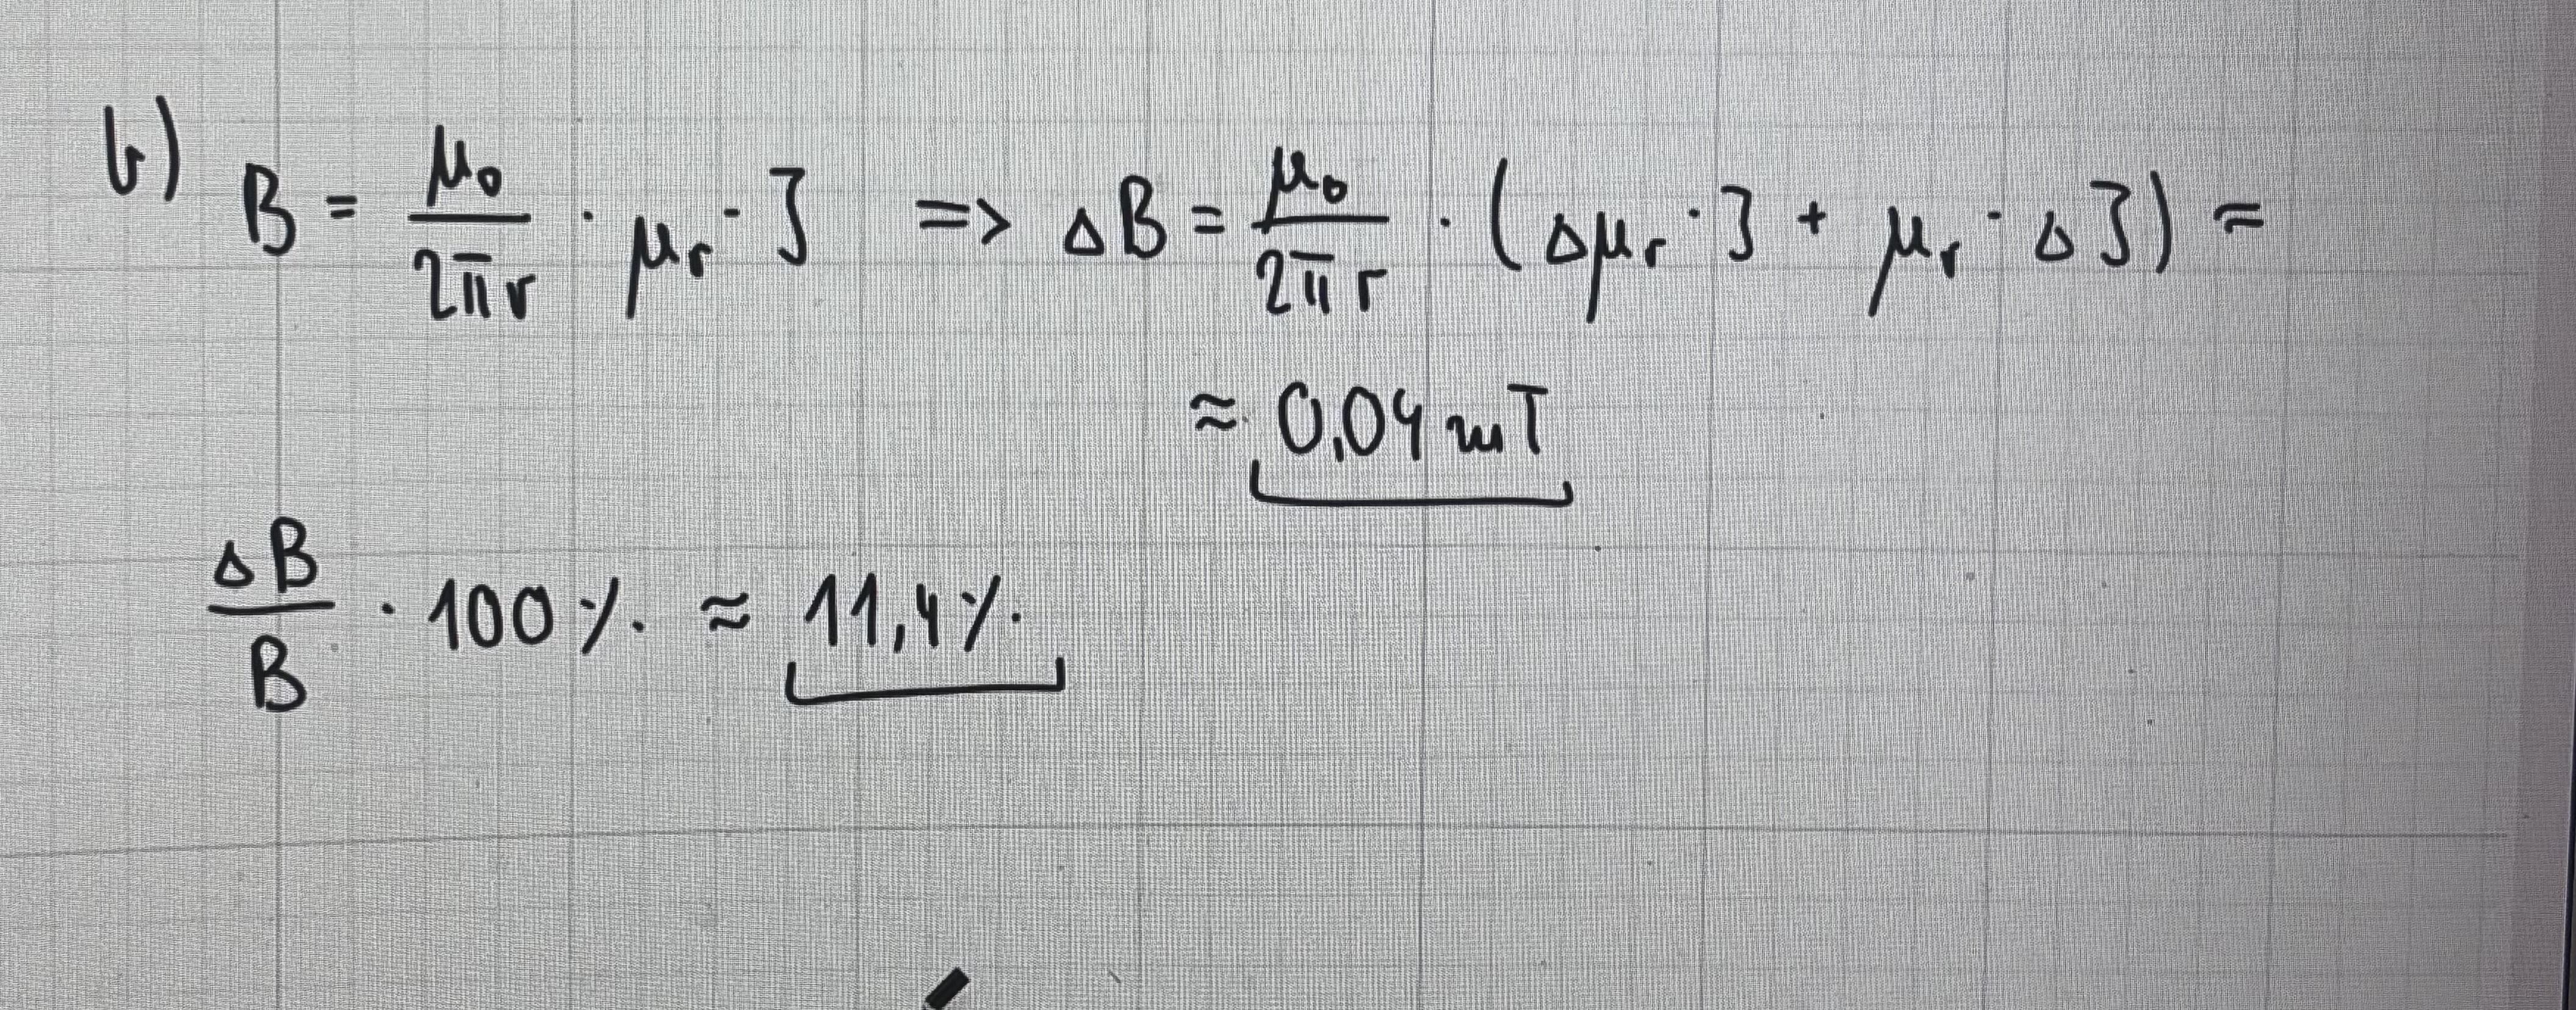 b) B = μ₀/2πr · μᵣ · I => ΔB = μ₀/2πr · (Δμᵣ · I + μᵣ · ΔI) =
≈ 0,04 mT
ΔB/B · 100 % ≈ 11,4 %